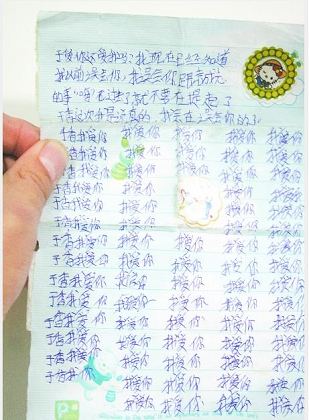 于香你还爱我吗?我现在已经知道
我以前误会你,我误会你
的事 过去了就不要在提起了
于香这次我是认真的,我会在误会你的了
于香我爱你 我爱你 我爱你 我爱你
于香我爱你 我爱你 我爱你 我爱你
于香我爱你 我爱你 我爱你 我爱你
于香我爱你 我爱你 我爱你
于香我爱你 我爱你 我爱你
于香我爱你 我爱你 我爱你
于香我爱你 我爱你 我爱你 我爱你 我爱你
于香我爱你 我爱你 我爱你 我爱你 我爱你
于香我爱你 我爱你 我爱你 我爱你 我爱你
于香我爱你 我爱你 我爱你 我爱你 我爱你
于香我爱你 我爱你 我爱你 我爱你 我爱你
于香我爱你 我爱你 我爱你 我爱你 我爱你
于香我爱你 我爱你 我爱你 我爱你 我爱你
于香我爱你 我爱你 我爱你 我爱你 我爱你
我爱你 我爱你 我爱你 我爱你